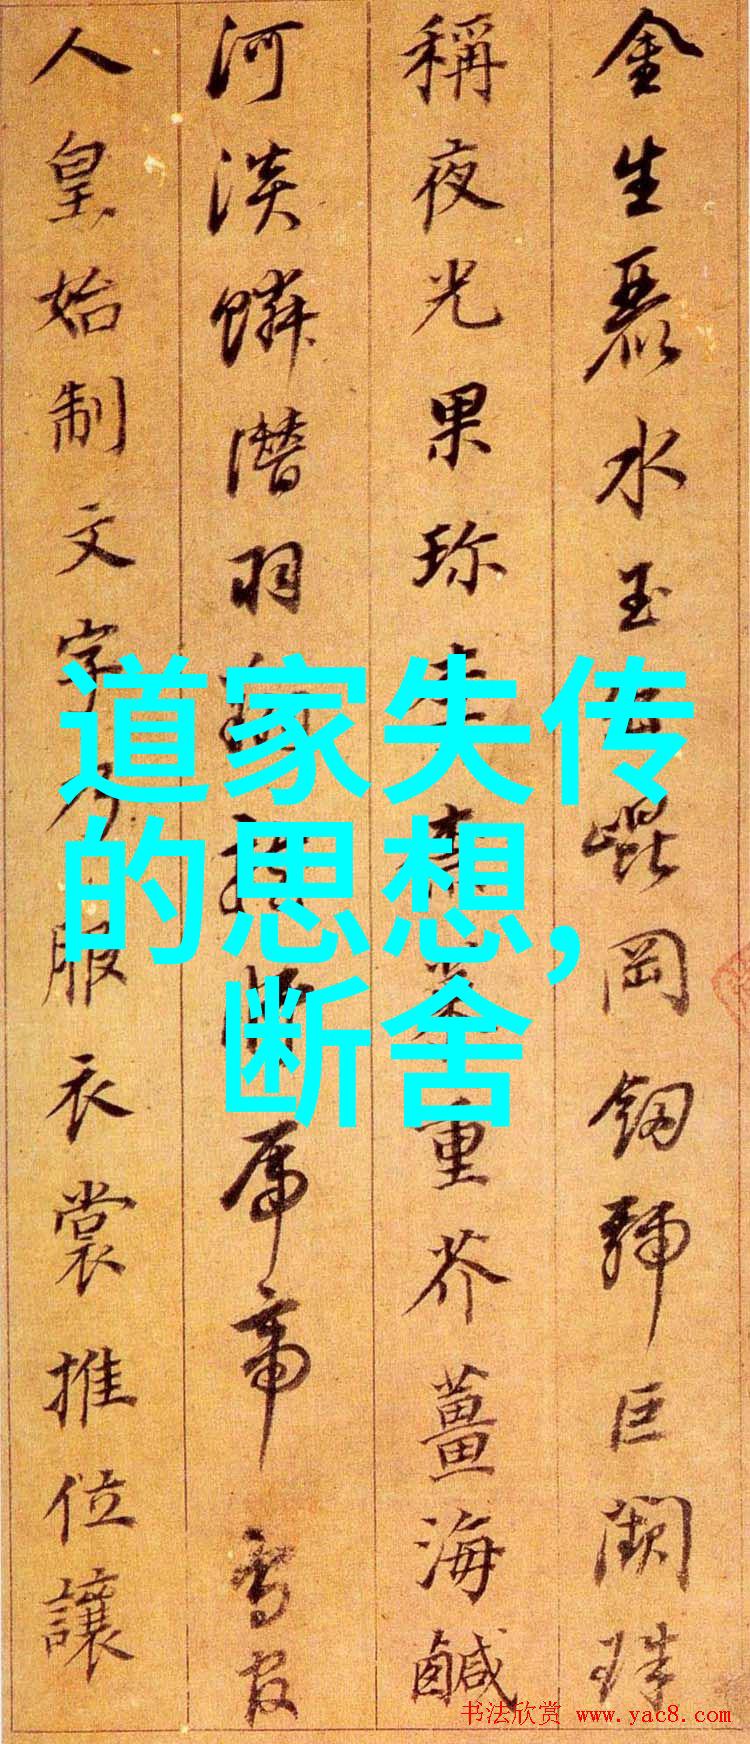 金生麗水玉出崐岡劒號巨闕珠
稱夜光果珎李柰菜重芥薑海鹹
河淡鱗潛羽翔龍師火帝鳥官
人皇始制文字乃服衣裳推位讓
道家失传
的思想,
断舍
书法欣赏 www.yac8.com